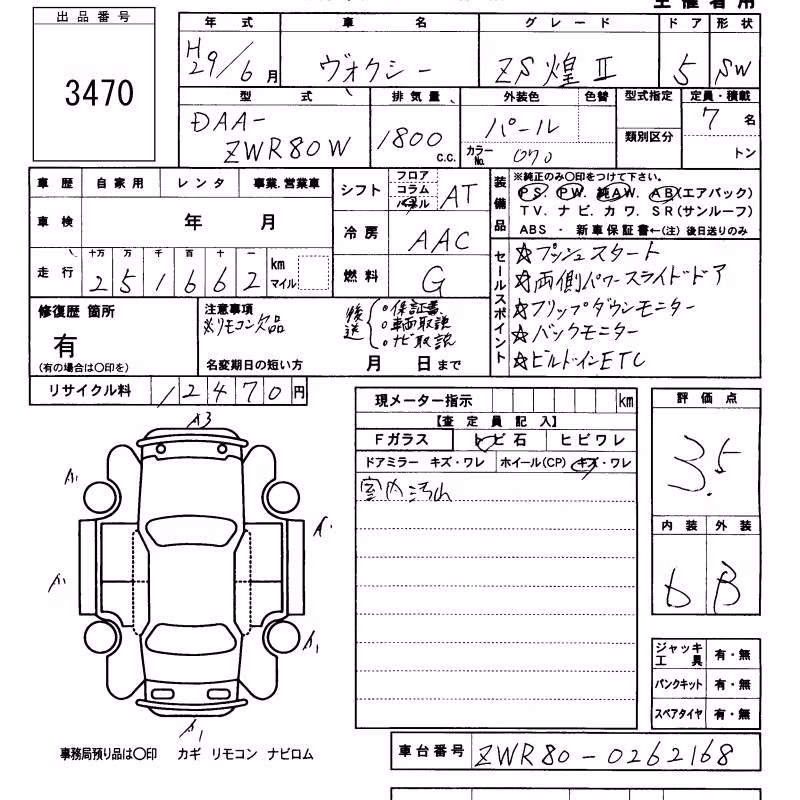 主催者用
出品番号
3470
年式 車名 グレード ドア 形状
H29/6月 ヴォクシー ZS煌Ⅱ 5 SW
型式 排気量 外装色 色替 型式指定 定員・積載
DAA-ZWR80W 1800 C.C. パール カラーNo. 070 類別区分 7名 トン
車歴 自家用 レンタ 事業.営業車
車検 年 月
走行 十万 万 千 百 十 一 km マイル
251662
シフト フロア コラム パネル AT
冷房 AAC
燃料 G
装備品
※純正のみ〇印をつけて下さい。
PS. PW. 純AW. AB(エアバック)
TV. ナビ. カワ. SR(サンルーフ)
ABS ・ 新車保証書←(注) 後日送りのみ
セールスポイント
☆プッシュスタート
☆両側パワースライドドア
☆フリップダウンモニター
☆バックモニター
☆ビルドインETC
修復歴 箇所
有
(有の場合は〇印を)
注意事項
※リモコン欠品
後送
○保証書
○車両取説
○ナビ取説
名変期日の短い方 月 日まで
リサイクル料 12470円
A3
A1
A1
A1
A1
A1
事務局預り品は〇印 カギ リモコン ナビロム
現メーター指示 km
【査定員記入】
Fガラス トビ石 ヒビワレ
ドアミラー キズ・ワレ ホイール(CP) キズ・ワレ
室内汚れ
評価点
3.5
内装 外装
D B
ジャッキ工具 有・無
パンクキット 有・無
スペアタイヤ 有・無
車台番号 ZWR80-0262168